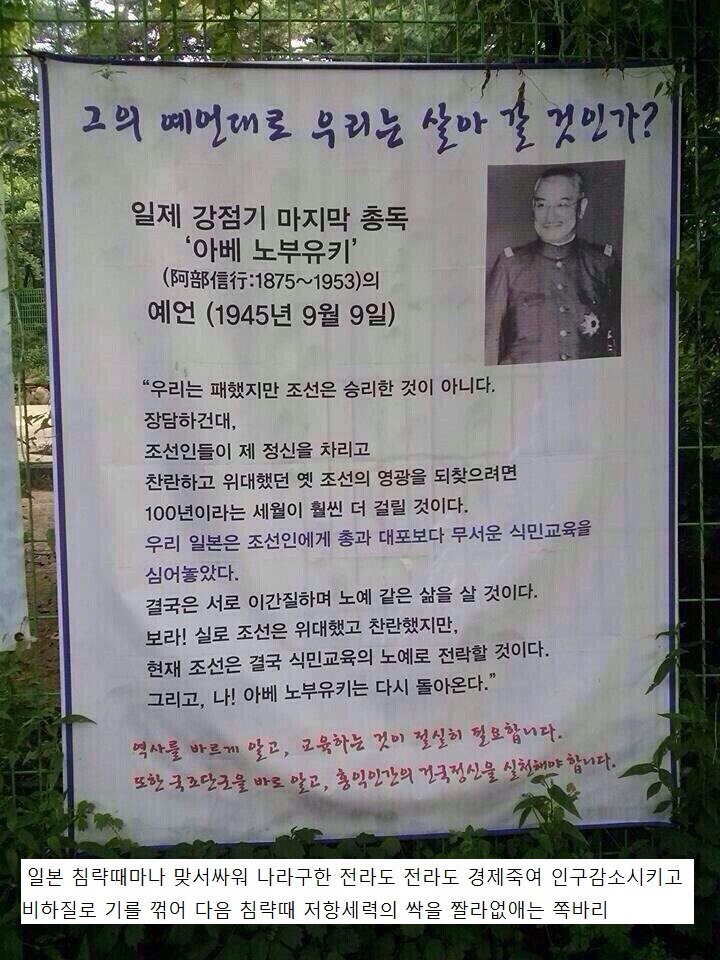 그의 예언대로 우리는 살아 갈 것인가?
일제 강점기 마지막 총독
‘아베 노부유키’
(阿部信行:1875～1953)의
예언 (1945년 9월 9일)
“우리는 패했지만 조선은 승리한 것이 아니다.
장담하건대,
조선인들이 제 정신을 차리고
찬란하고 위대했던 옛 조선의 영광을 되찾으려면
100년이라는 세월이 훨씬 더 걸릴 것이다.
우리 일본은 조선인에게 총과 대포보다 무서운 식민교육을
심어놓았다.
결국은 서로 이간질하며 노예 같은 삶을 살 것이다.
보라! 실로 조선은 위대했고 찬란했지만,
현재 조선은 결국 식민교육의 노예로 전락할 것이다.
그리고, 나! 아베 노부유키는 다시 돌아온다.”
역사를 바르게 알고, 교육하는 것이 절실히 필요합니다.
또한 국조단군을 바로 알고, 홍익인간의 건국정신을 실천해야 합니다.
일본 침략때마나 맞서싸워 나라구한 전라도 전라도 경제죽여 인구감소시키고
비하질로 기를 꺾어 다음 침략때 저항세력의 싹을 짤라없애는 쪽바리